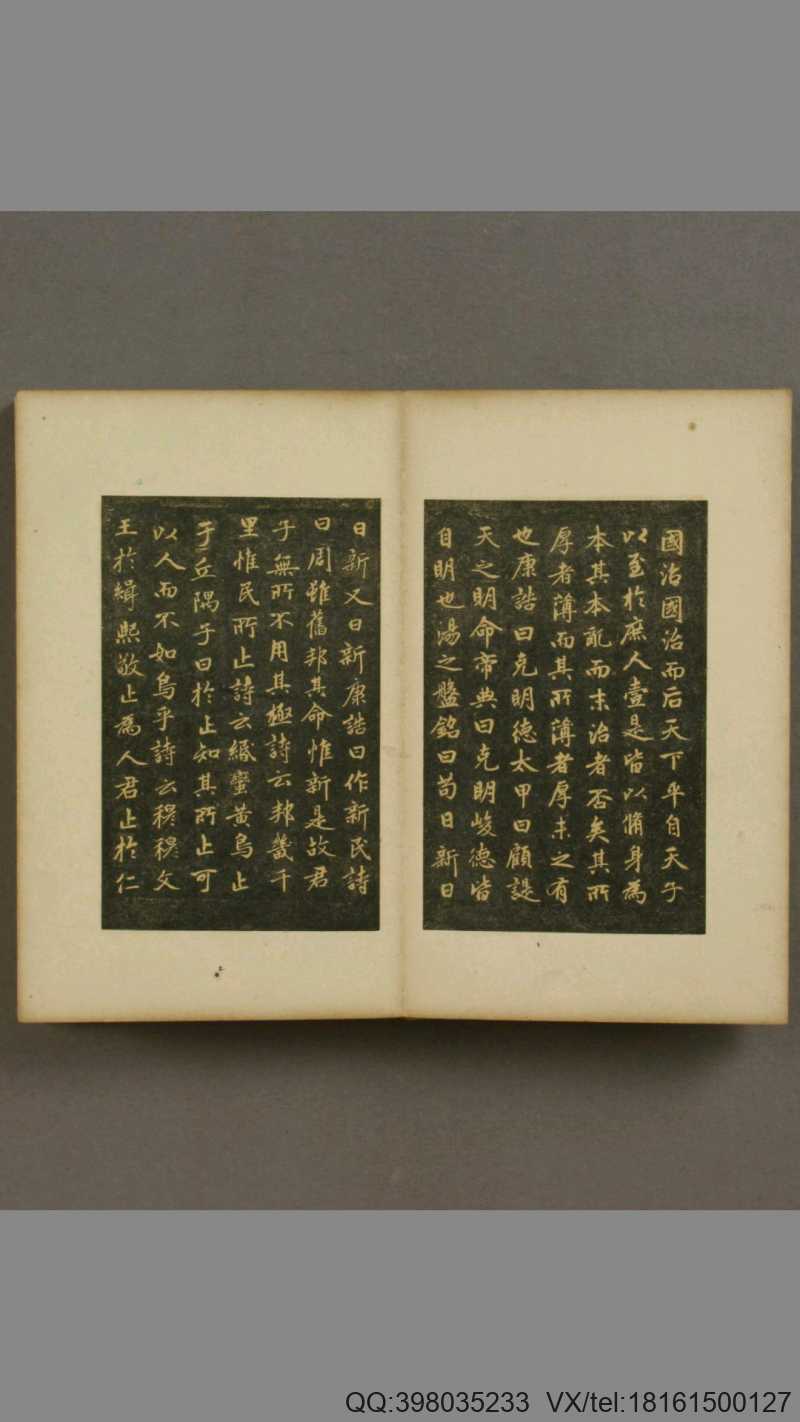 國治國治而后天下平自天子
以至於庶人壹是皆以脩身為
本其本亂而末治者否矣其所
厚者薄而其所薄者厚未之有
也康誥曰克明德太甲曰顧諟
天之明命帝典曰克明峻德皆
自明也湯之盤銘曰苟日新日
日新又日新康誥曰作新民詩
曰周雖舊邦其命惟新是故君
子無所不用其極詩云邦畿千
里惟民所止詩云緡蠻黃鳥止
于丘隅子曰於止知其所止可
以人而不如鳥乎詩云穆穆文
王於緝熙敬止為人君止於仁
QQ:398035233 VX/tel:18161500127